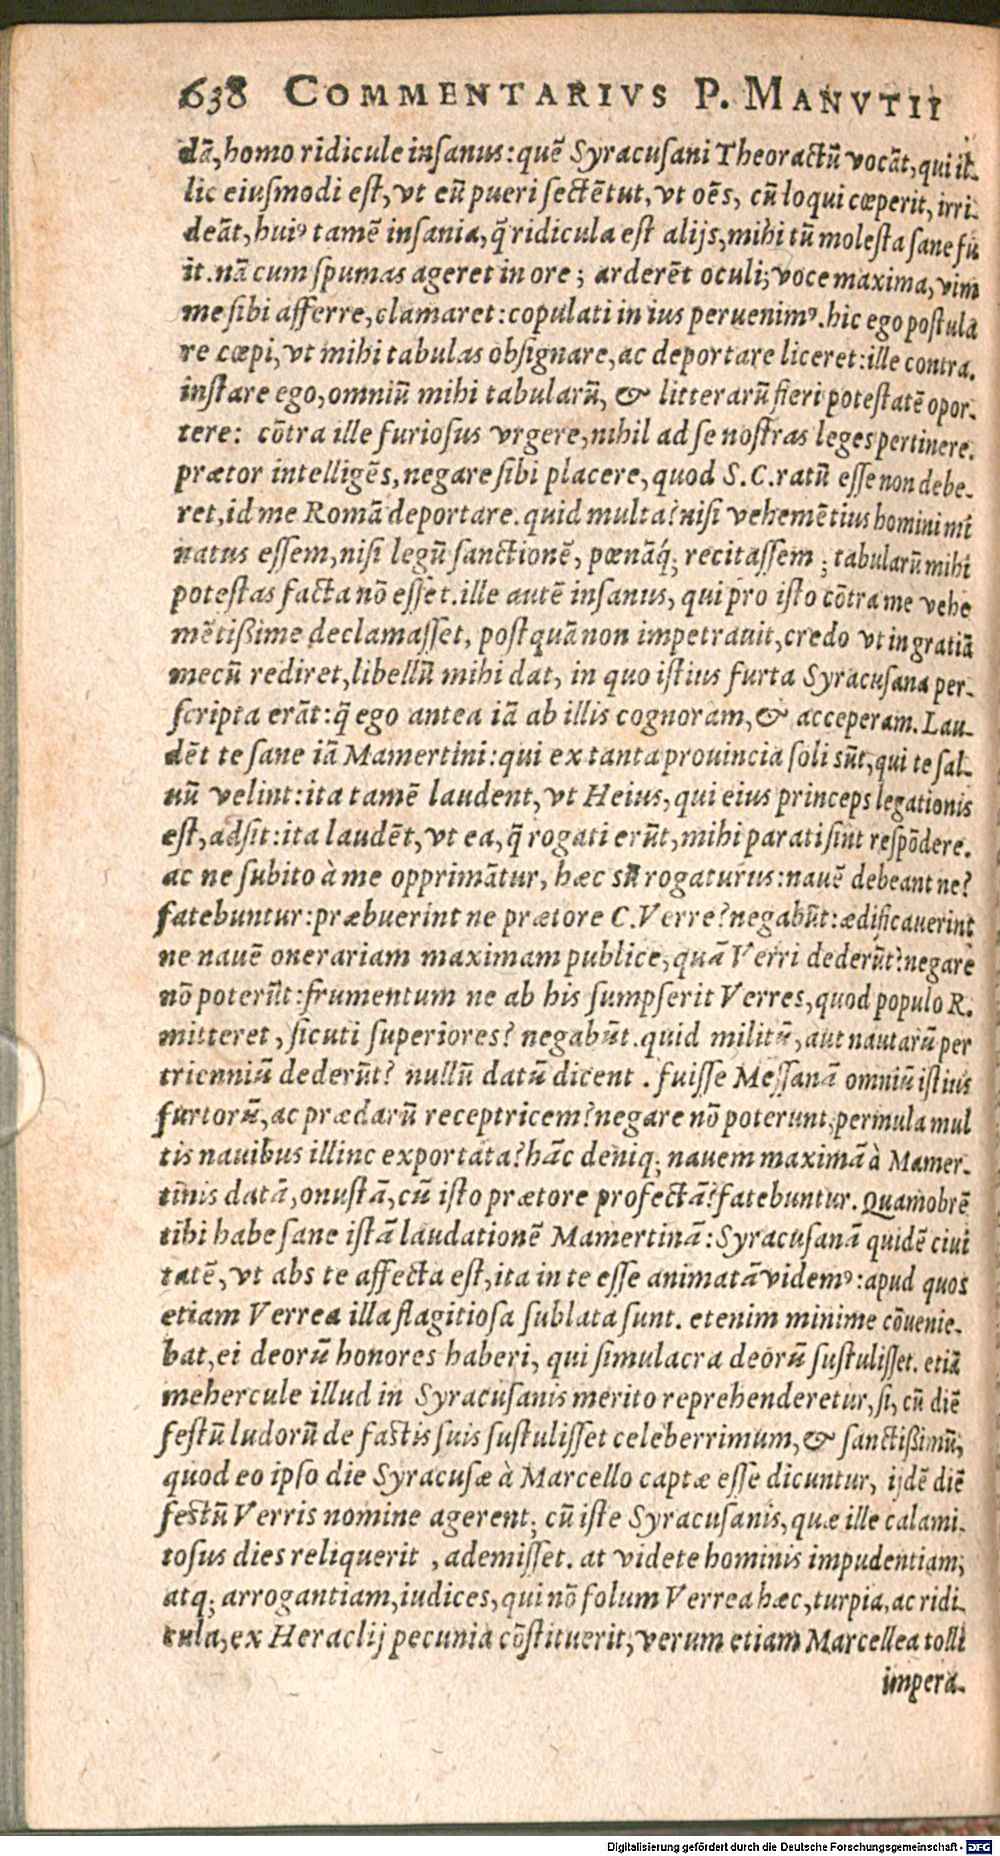 638 COMMENTARIVS P. MANVTII
dā, homo ridicule insanus: quē Syracusani Theoractū vocāt, qui il-
lic eiusmodi est, vt eū pueri sectētut, vt oēs, cū loqui cœperit, irri-
deāt, huiꝰ tamē insania, q̄ ridicula est alijs, mihi tū molesta sane fu
it. nā cum spumas ageret in ore; arderēt oculi; voce maxima, vim
me sibi afferre, clamaret: copulati in ius peruenimꝰ. hic ego postula
re cœpi, vt mihi tabulas obsignare, ac deportare liceret: ille contra.
instare ego, omniū mihi tabularū, & litterarū fieri potestatē opor-
tere: cōtra ille furiosus vrgere, nihil ad se nostras leges pertinere.
prætor intelligēs, negare sibi placere, quod S.C. ratū esse non debe-
ret, id me Romā deportare. quid multa? nisi vehemētius homini mi
natus essem, nisi legū sanctionē, pœnāq; recitassem; tabularū mihi
potestas facta nō esset. ille autē insanus, qui pro isto cōtra me vehe
mētißime declamasset, postquā non impetrauit, credo vt in gratiā
mecū rediret, libellū mihi dat, in quo istius furta Syracusana per-
scripta erāt: q̄ ego antea iā ab illis cognoram, & acceperam. Lau-
dēt te sane iā Mamertini: qui ex tanta prouincia soli sūt, qui te sal-
uū velint: ita tamē laudent, vt Heius, qui eius princeps legationis
est, adsit: ita laudēt, vt ea, q̄ rogati erūt, mihi parati sint respōdere.
ac ne subito à me opprimātur, hæc sū rogaturus: nauē debeant ne?
fatebuntur: præbuerint ne prætore C. Verre? negabūt: ædificauerint
ne nauē onerariam maximam publice, quā Verri dederūt? negare
nō poterūt: frumentum ne ab his sumpserit Verres, quod populo R.
mitteret, sicuti superiores? negabūt. quid militū, aut nautarū per
trienniū dederūt? nullū datū dicent. fuisse Messanā omniū istius
furtorū, ac prædarū receptricem? negare nō poterunt: permula mul
tis nauibus illinc exportata? hāc deniq; nauem maximā à Mamer-
tinis datā, onustā, cū isto prætore profectā? fatebuntur. Quamobrē
tibi habe sane istā laudationē Mamertinā: Syracusanā quidē ciui
tatē, vt abs te affecta est, ita in te esse animatā videmꝰ: apud quos
etiam Verrea illa flagitiosa sublata sunt. etenim minime cōuenie-
bat, ei deorū honores haberi, qui simulacra deorū sustulisset. etiā
mehercule illud in Syracusanis merito reprehenderetur, si, cū diē
festū ludorū de fastis suis sustulisset celeberrimum, & sanctißimū,
quod eo ipso die Syracusæ à Marcello captæ esse dicuntur, ijdē diē
festū Verris nomine agerent; cū iste Syracusanis, quæ ille calami-
tosus dies reliquerit, ademisset. at videte hominis impudentiam,
atq; arrogantiam, iudices, qui nō solum Verrea hæc, turpia, ac ridi-
cula, ex Heraclij pecunia cōstituerit, verum etiam Marcellea tolli
impera-
Digitalisierung gefördert durch die Deutsche Forschungsgemeinschaft - DFG